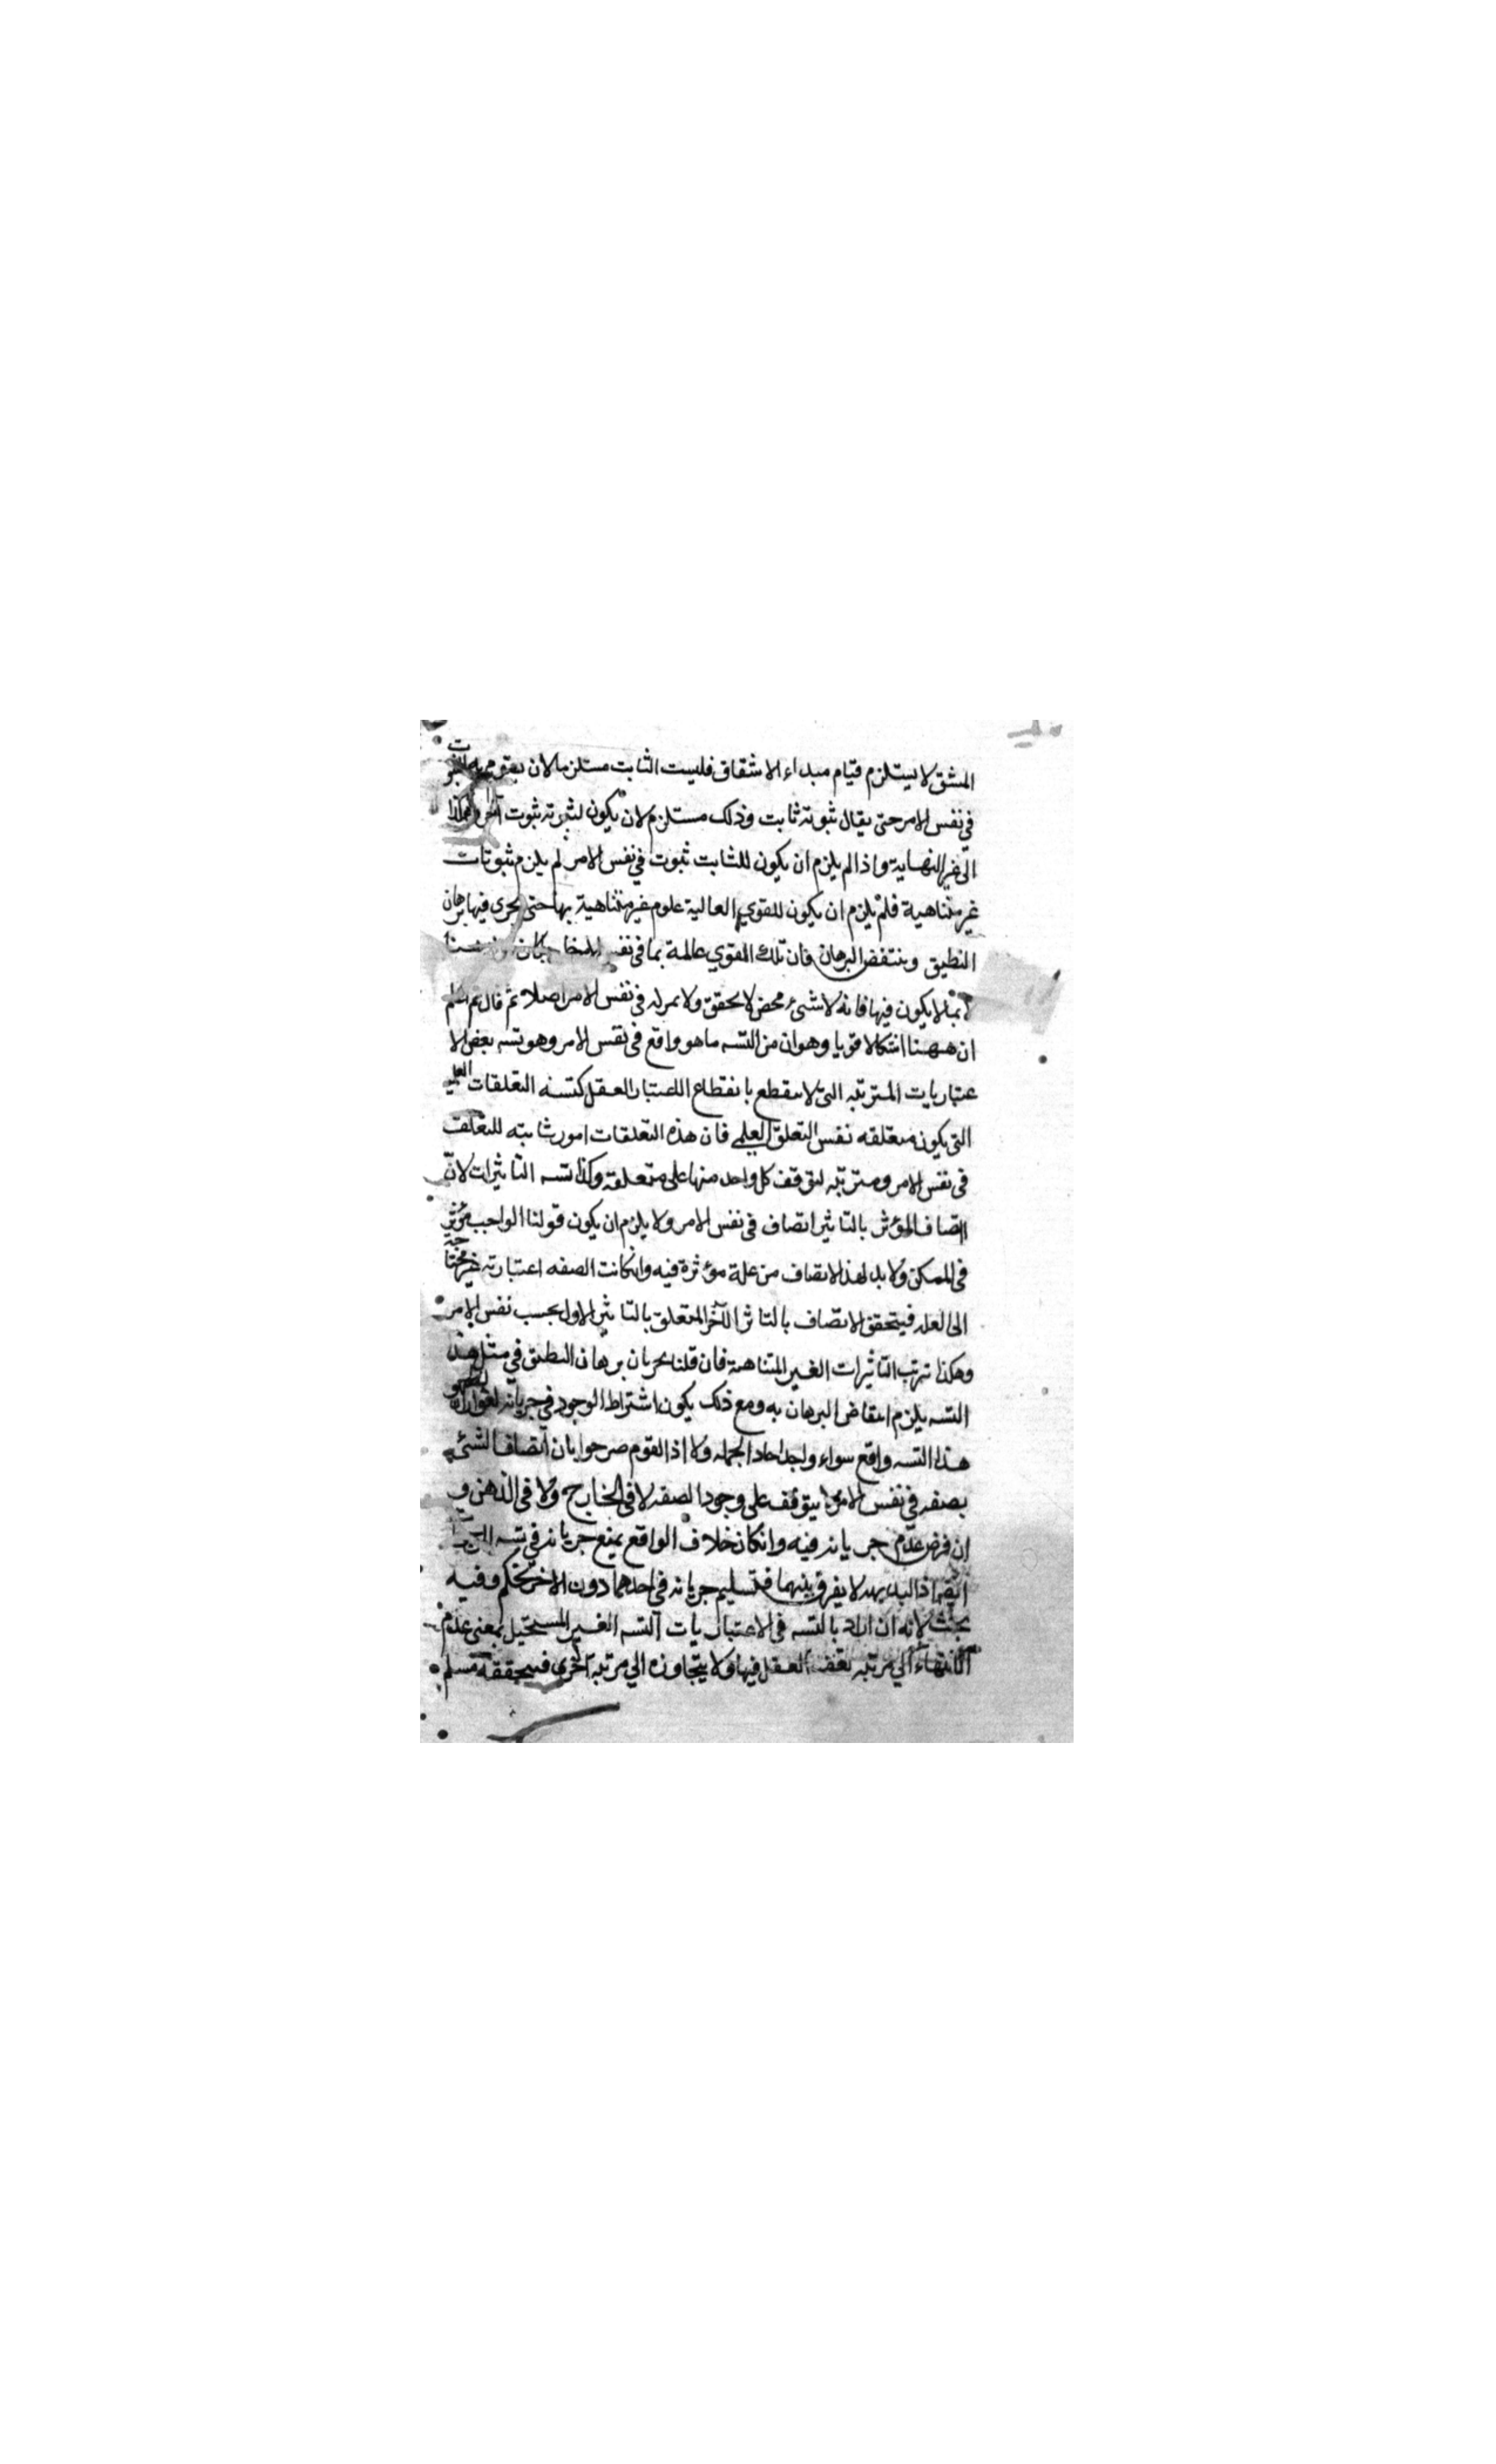 المشتق لا يستلزم قيام مبداء الاشتقاق فليست الثابت مستلزما لان يقوم به الثبوت
في نفس الامر حتى يقال ثبوته ثابت وذلك مستلزم لان يكون لثبوته ثبوت آخر وهكذا
الى غير النهاية واذا لم يلزم ان يكون للثابت ثبوت في نفس الامر لم يلزم ثبوتات
غير متناهية فلم يلزم ان يكون للقوي العالية علوم غير متناهية بها حتى يجرى فيها برهان
التطبيق وينتقض البرهان فان تلك القوي عالمة بما في نفس
لا بما لا يكون فيها فانه لا شئ محض لا تحقق ولا في نفس الامر اصلا ثم قال ثم اعلم
ان ههنا اشكالا قويا وهو ان من التسه ما هو واقع في نفس الامر وهو تسه بعض الا
عتباريات المترتبه التى لا ينقطع بانقطاع الاعتبار العقل كتسه التعلقات العلميه
التى يكون متعلقه نفس التعلق العلمى فان هذه التعلقات امور ثابته للتعلقت
في نفس الامر ومترتبه لتوقف كل واحد منها على متعلقه وكذا تسه التاثيرات لانّ
اتصاف المؤثر بالتاثير اتصاف في نفس الامر ولا يلزم ان يكون قولنا الواجب مؤثر
في الممكن ولا بد لهذا الاتصاف من علة مؤثرة فيه وانكانت الصفه اعتباريه غير محتاجة
الى العله فيتحقق الاتصاف بالتاثر الآخر المتعلق بالتاثير الاول بحسب نفس الامر
وهكذا ترتب التاثيرات الغير المتناهية فان قلنا بجريان برهان التطبيق في مثل هذا
التسه يلزم انتقاض البرهان به ومع ذلك يكون اشتراط الوجود في جريانه لغوا
هذا التسه واقع سواء وجد احاد الجمله ولا اذ القوم صرحوا بان اتصاف الشئ
بصفه في نفس الامر لا يتوقف على وجود الصفه لا في الخارج ولا في الذهن و
ان فرض عدم جريانه فيه وانكان خلاف الواقع يمنع جريانه في تسه
ايضا اذ البديهه لا يفرق بينهما فتسليم جريانه في احدهما دون الاخر تحكم وفيه
بحث لانه ان اراد بالتسه في الاعتباريات التسه الغير المستحيل بمعنى عدم
الانتهاء الي مرتبه يقف العقل فيها ولا يتجاوزه الي مرتبه اخرى فتحققه مسلم